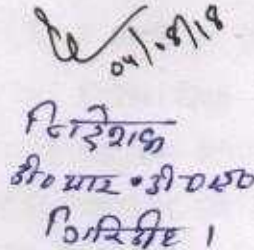 04/08/18
निदेशक
डी०आर०डी०ए०
गिरिडीह ।